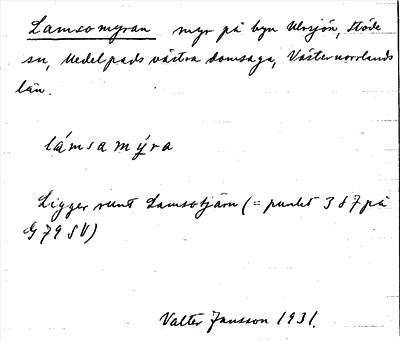 Lamsomyran myr på byn Ulvsjön, Stöde
sn, Medelpads västra domsaga, Västernorrlands
län.
lámsamýra
Ligger runt Lamsotjärn (= punkt 387 på
G 79 SV)
Valter Jansson 1931.